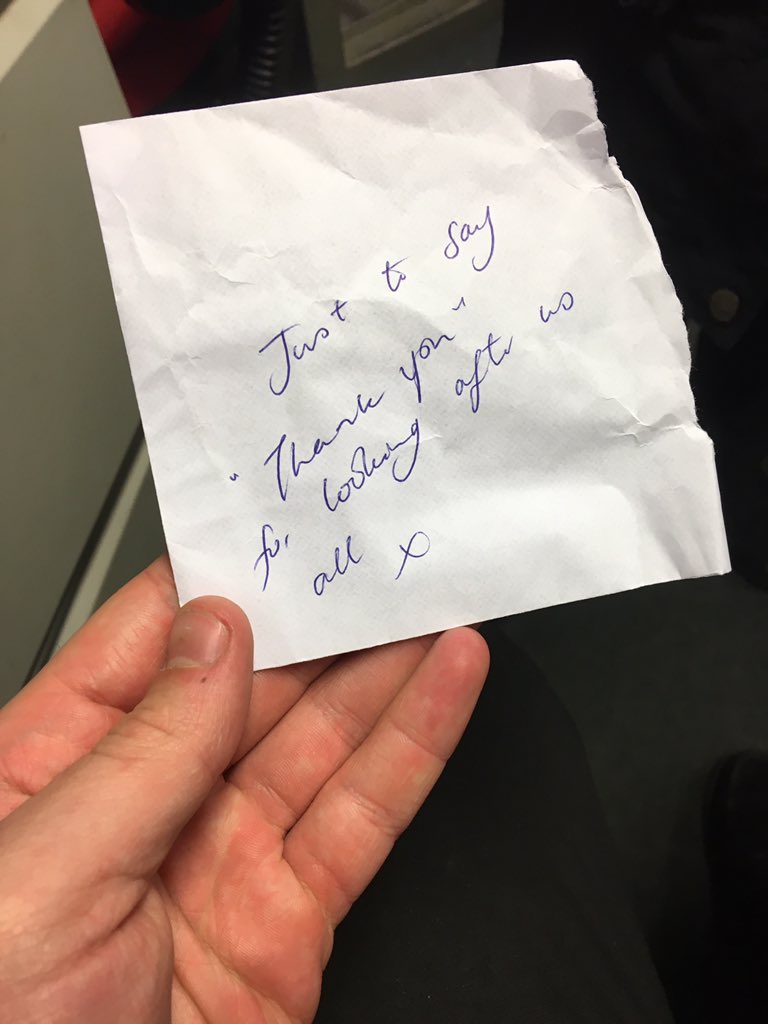 Just to say
"Thank you"
for looking after us
all x